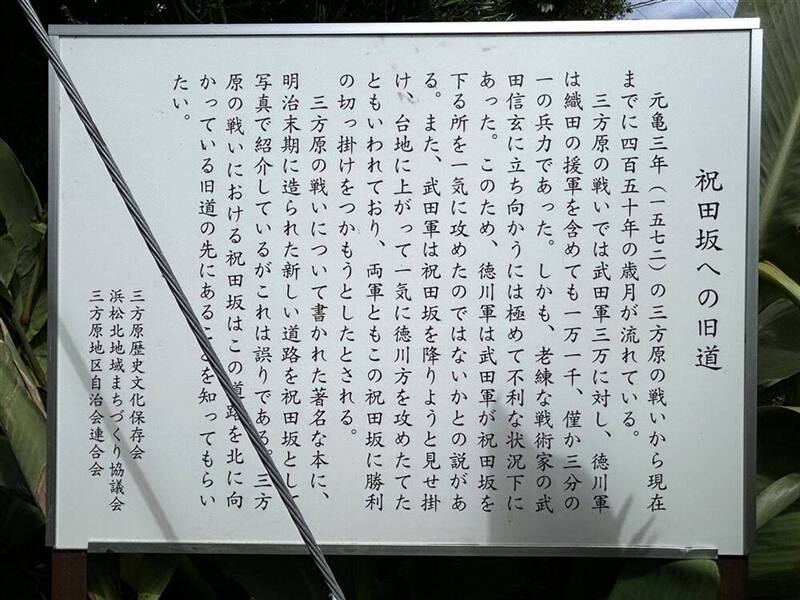 祝田坂への旧道
元亀三年（一五七二）の三方原の戦いから現在
までに四百五十年の歳月が流れている。
三方原の戦いでは武田軍三万に対し、徳川軍
は織田の援軍を含めても一万一千、僅か三分の
一の兵力であった。しかも、老練な戦術家の武
田信玄に立ち向かうには極めて不利な状況下に
あった。このため、徳川軍は武田軍が祝田坂を
下る所を一気に攻めたのではないかとの説があ
る。また、武田軍は祝田坂を降りようと見せ掛
け、台地に上がって一気に徳川方を攻めたてた
ともいわれており、両軍ともこの祝田坂に勝利
の切っ掛けをつかもうとしたとされる。
三方原の戦いについて書かれた著名な本に、
明治末期に造られた新しい道路を祝田坂として
写真で紹介しているがこれは誤りである。三方
原の戦いにおける祝田坂はこの道路を北に向
かっている旧道の先にあることを知ってもらい
たい。
三方原歴史文化保存会
浜松北地域まちづくり協議会
三方原地区自治会連合会